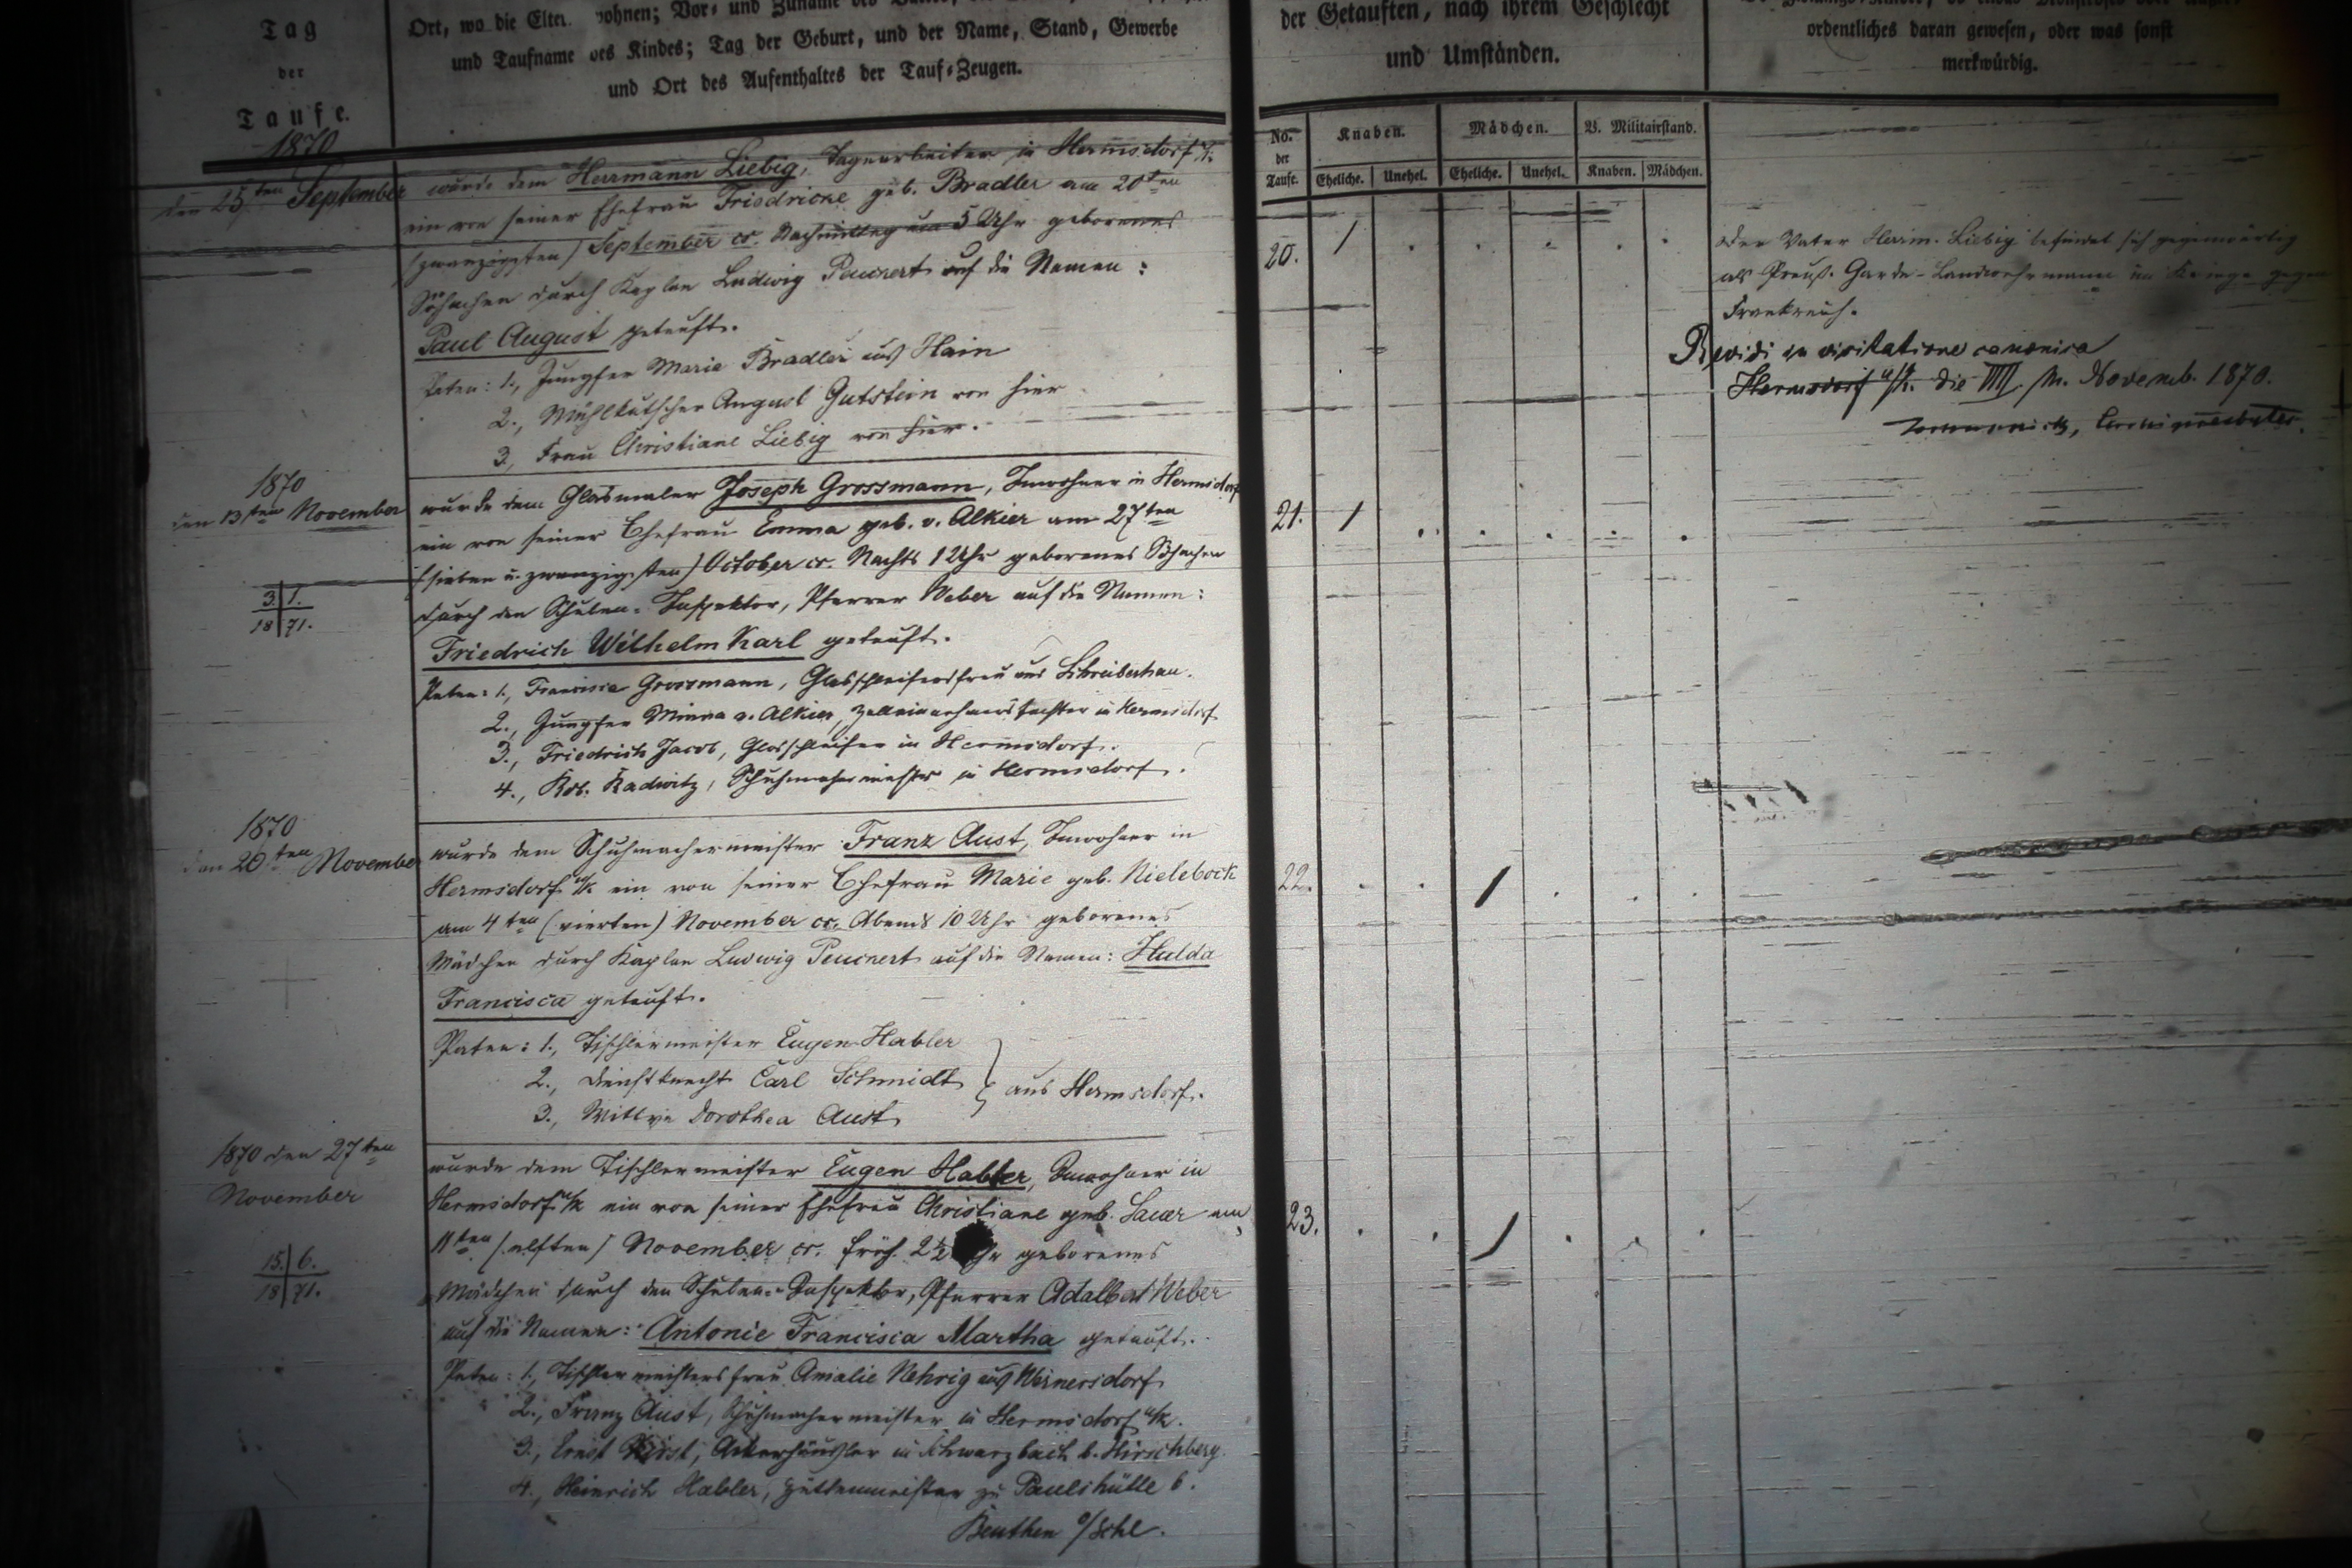 Tag
der
Taufe.
Ort, wo die Eltern wohnen; Vor- und Zuname des
und Taufname des Kindes; Tag der Geburt, und der Name, Stand, Gewerbe
und Ort des Aufenthaltes der Tauf-Zeugen.
der Getauften, nach ihrem Geschlecht
und Umständen.
ordentliches daran gewesen, oder was sonst
merkwürdig.
No.
der
Taufe.
Knaben.
Mädchen.
V. Militairstand.
Eheliche.
Unehel.
Eheliche.
Unehel.
Knaben.
Mädchen.
1870
den 25ten September
wurde dem Herrmann Liebig, Tagearbeiter in Hermsdorf
ein von seiner Ehefrau Friedricke geb. Bradler am 20ten
(zwanzigsten) September cr. Nachmittag um 5 Uhr geborenes
Söhnchen durch Kaplan Ludwig Peuckert auf die Namen:
Paul August getauft.
Paten: 1., Jungfer Marie Bradler aus Hain
2., Mühlkutscher August Gutstein von hier
3., Frau Christiane Liebig von hier.
20. 1
Der Vater Herrm. Liebig befindet sich gegenwärtig
als Preuß. Garde-Landwehrmann im Kriege gegen
Frankreich.
Revidi in visitatione canonica
Hermsdorf u/K. die VIII m. Novemb. 1870.
1870
den 13ten November
3. 1.
18 71.
wurde dem Glasmaler Joseph Grossmann, Inwohner in Hermsdorf
ein von seiner Ehefrau Emma geb. v. Alkier am 27ten
(sieben u. zwanzigsten) October cr. Nachts 1 Uhr geborenes Söhnchen
durch den Schulen-Inspektor, Pfarrer Weber auf die Namen:
Friedrich Wilhelm Karl getauft.
Paten: 1., Francisca Grossmann, Glasschleifersfrau aus Schreiberhau.
2., Jungfer Minna v. Alkier, Zolleinnehmers Tochter in Hermsdorf
3., Friedrich Jacob, Glasschleifer in Hermsdorf.
4., Rob. Kadwitz, Schuhmachermeister in Hermsdorf.
21. 1
1870
den 20ten November
wurde dem Schuhmachermeister Franz Aust, Inwohner in
Hermsdorf u/K ein von seiner Ehefrau Marie geb. Nielebock
am 4ten (vierten) November cr. Abends 10 Uhr geborenes
Mädchen durch Kaplan Ludwig Peuckert auf die Namen: Hulda
Francisca getauft.
Paten: 1., Tischlermeister Eugen Habler
2., Dienstknecht Carl Schmidt
3., Wittwe Dorothea Aust
aus Hermsdorf.
22. 1
1870 den 27ten
November
15. 6.
18 71.
wurde dem Tischlermeister Eugen Habler, Inwohner in
Hermsdorf u/K ein von seiner Ehefrau Christiane geb. am
11ten (elften) November cr. früh 2½ Uhr geborenes
Mädchen durch den Schulen-Inspektor, Pfarrer Adalbert Weber
auf die Namen: Antonie Francisca Martha getauft.
Paten: 1., Tischlermeistersfrau Amalie Nehrig aus Wernersdorf
2., Franz Aust, Schuhmachermeister in Hermsdorf u/K.
3., Ernst Ackerhäusler in Schwarzbach b. Hirschberg.
4., Heinrich Habler, Hüttenmeister zu Paulshütte b.
Beuthen o/Schl.
23. 1